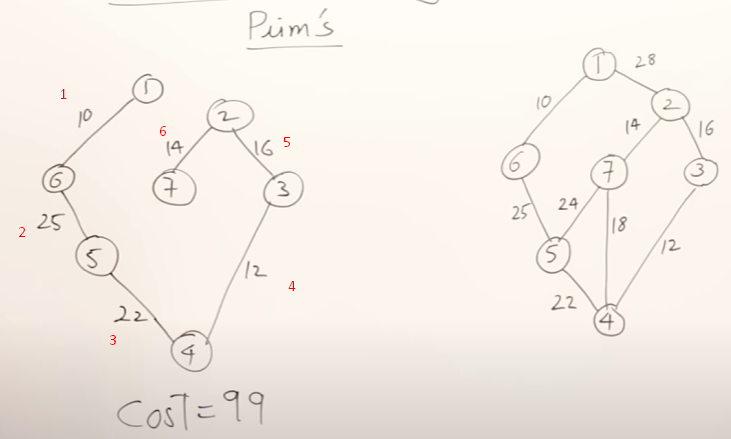 Prim's
1
1
10
6
2
14
5
16
6
7
3
25
2
5
12
4
22
3
4
COST = 99
1
28
2
10
14
16
6
7
3
25
24
18
12
5
22
4